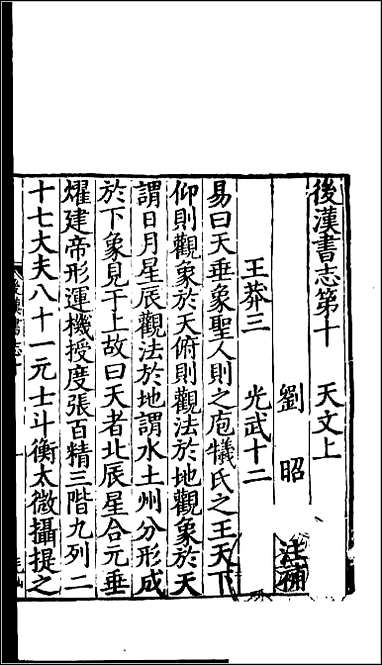 後漢書志第十　天文上
劉昭　注補
王莽三　光武十二
易曰天垂象聖人則之庖犧氏之王天下
仰則觀象於天俯則觀法於地觀象於天
謂日月星辰觀法於地謂水土州分形成
於下象見于上故曰天者北辰星合元垂
燿建帝形運機授度張百精三階九列二
十七大夫八十一元士斗衡太微攝提之